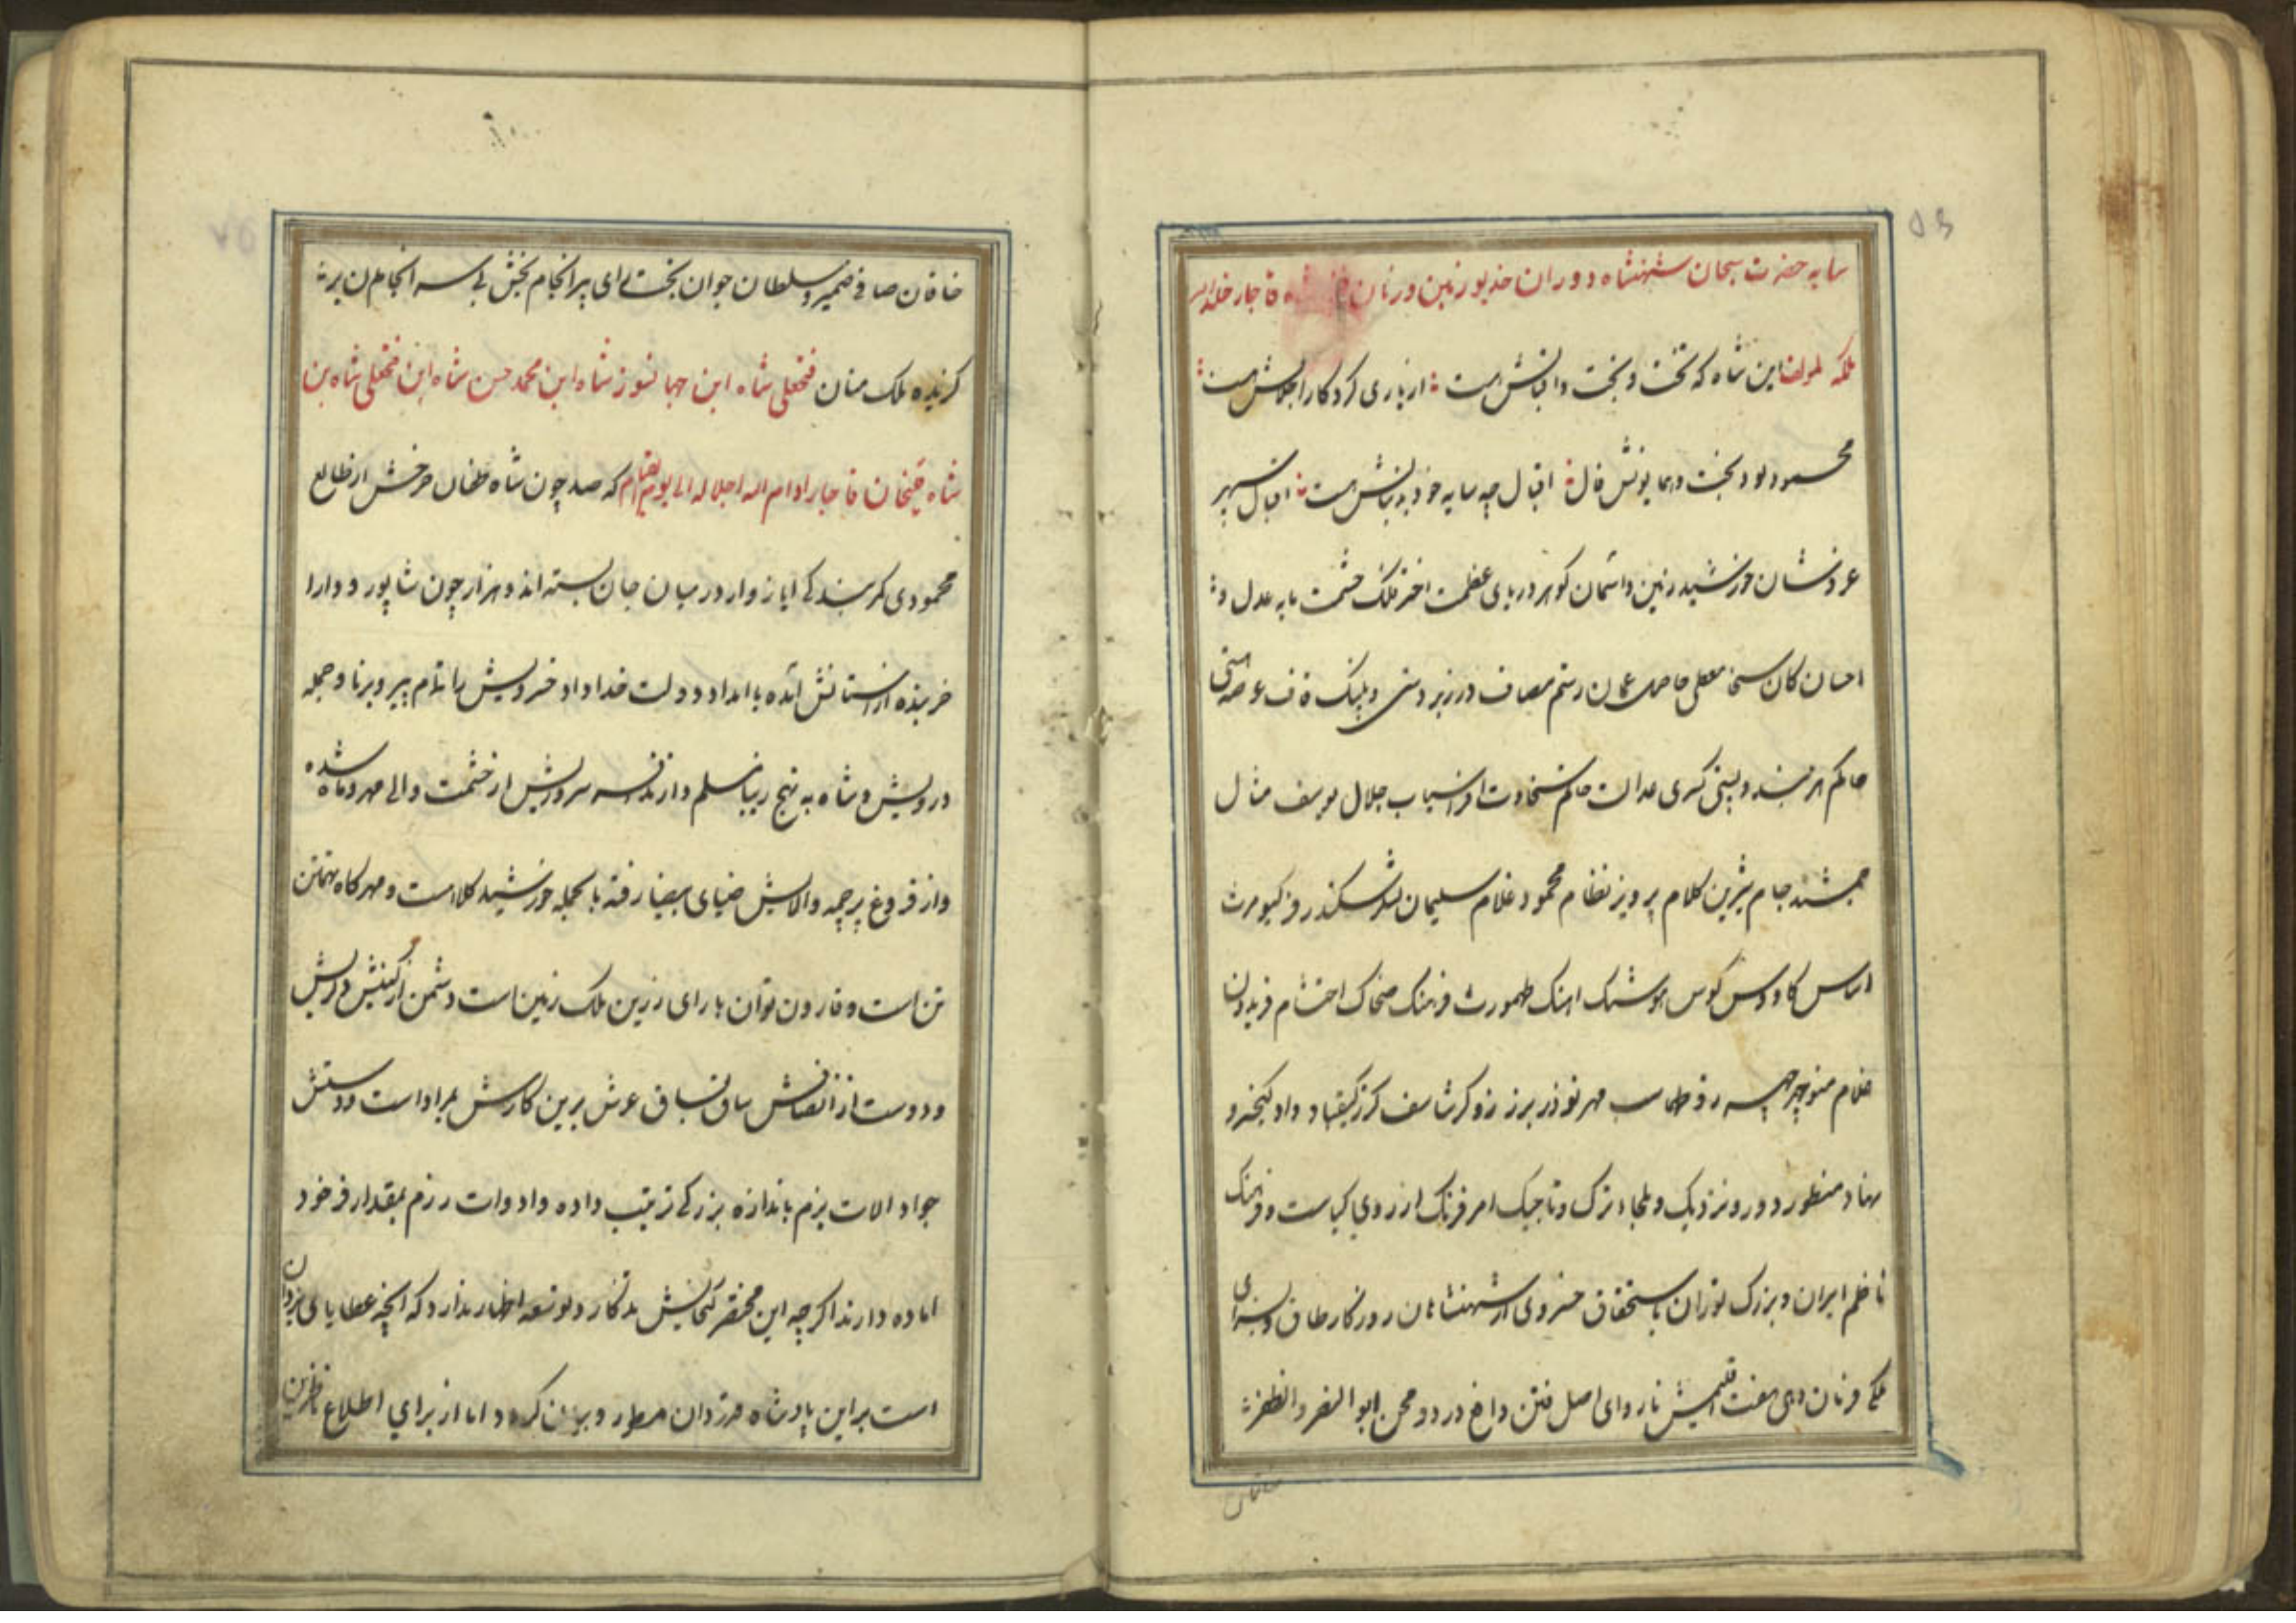 سایه حضرت سبحان شهنشاه دوران خدیو زمین و زمان شاه قاجار خلد الله
ملکه لمولفه این شاه که تخت و بخت و اقبالش هست از یاری کردکار اجلالش هست
محمود بود بخت و همایونش فال اقبال چو سایه خود بدنبالش هست اقبال سپهر
عز و شان خورشید زمین و آسمان کوهر دریای عظمت اختر فلک حشمت مایه عدل و
احسان کان سخا معطی حاصل عمان رستم مصاف در زبردستی و پلنک قاف عرصه هستی
حاکم هر بلند و پستی کسری عدالت حاتم سخاوت افراسیاب جلال یوسف مثال
جمشید جام شیرین کلام پرویز نظام محمود غلام سلیمان بشر سکندر فر کیومرث
اساس کاوس کوس هوشنک اهنک طهمورث فرهنک ضحاک احتشام فریدون
غلام منوچهر چهر زو طهماسب مهر نوذر برز زو کرشاسف کرز کیقباد داد کیخسرو
نهاد منظور دور و نزدیک و ملجاء ترک و تاجیک امر فرنک از روی کیاست و فرهنک
ناظم ایران و بزرک توران باستحقاق خسروی از شهنشاهان روزکار طاق و بسزای
ملکی فرمان دهی هفت اقلیمش ناروای اصل فتن داغ درد و محن ابو النصر و الظفر
خاقان صافی ضمیر و سلطان جوان بخت رای پیر انجام بخش بی سر انجامان بر
کزیده ملک منان فتحعلی شاه ابن جهانسوز شاه ابن محمد حسن شاه ابن فتحعلی شاه بن
شاه قلیخان قاجار ادام الله اجلاله الی یوم القیام که صد چون شاه طغان هر خش از طالع
محمودی کمر بندکی ایاز وار در میان جان بسته اند و هزار چون شاپور و دارا
خریده از استانش آمده بامداد دولت خداداد خسرویش را تمام پیر و برنا و جمله
درویش و شاه به نهج رسا مسلم دارند افسر سروریش از حشمت والی مهر و ماه شده
و از فروغ پرچم والایش ضیای بیضا رفته بالجمله خورشید کلاهست و مهر کاه تهمتن
تن است و قارون توان بارای رزین ملک زمین است و دشمن از کینش در لرزش
و دوست از انصافش ساق بساق عرش برین کارش بمراد است و دستش
جواد الات بزم باندازه بزرکی ترتیب داده و ادوات رزم بمقدار فر خود
اماده دارند اکرچه این مختصر کنجایش بد نکار و توسعه اظهار ندارد که انچه عطایای یزدان
است بر این پادشاه مرزدان مسطور و بیان کردد اما از برای اطلاع ناظرین
خاقان